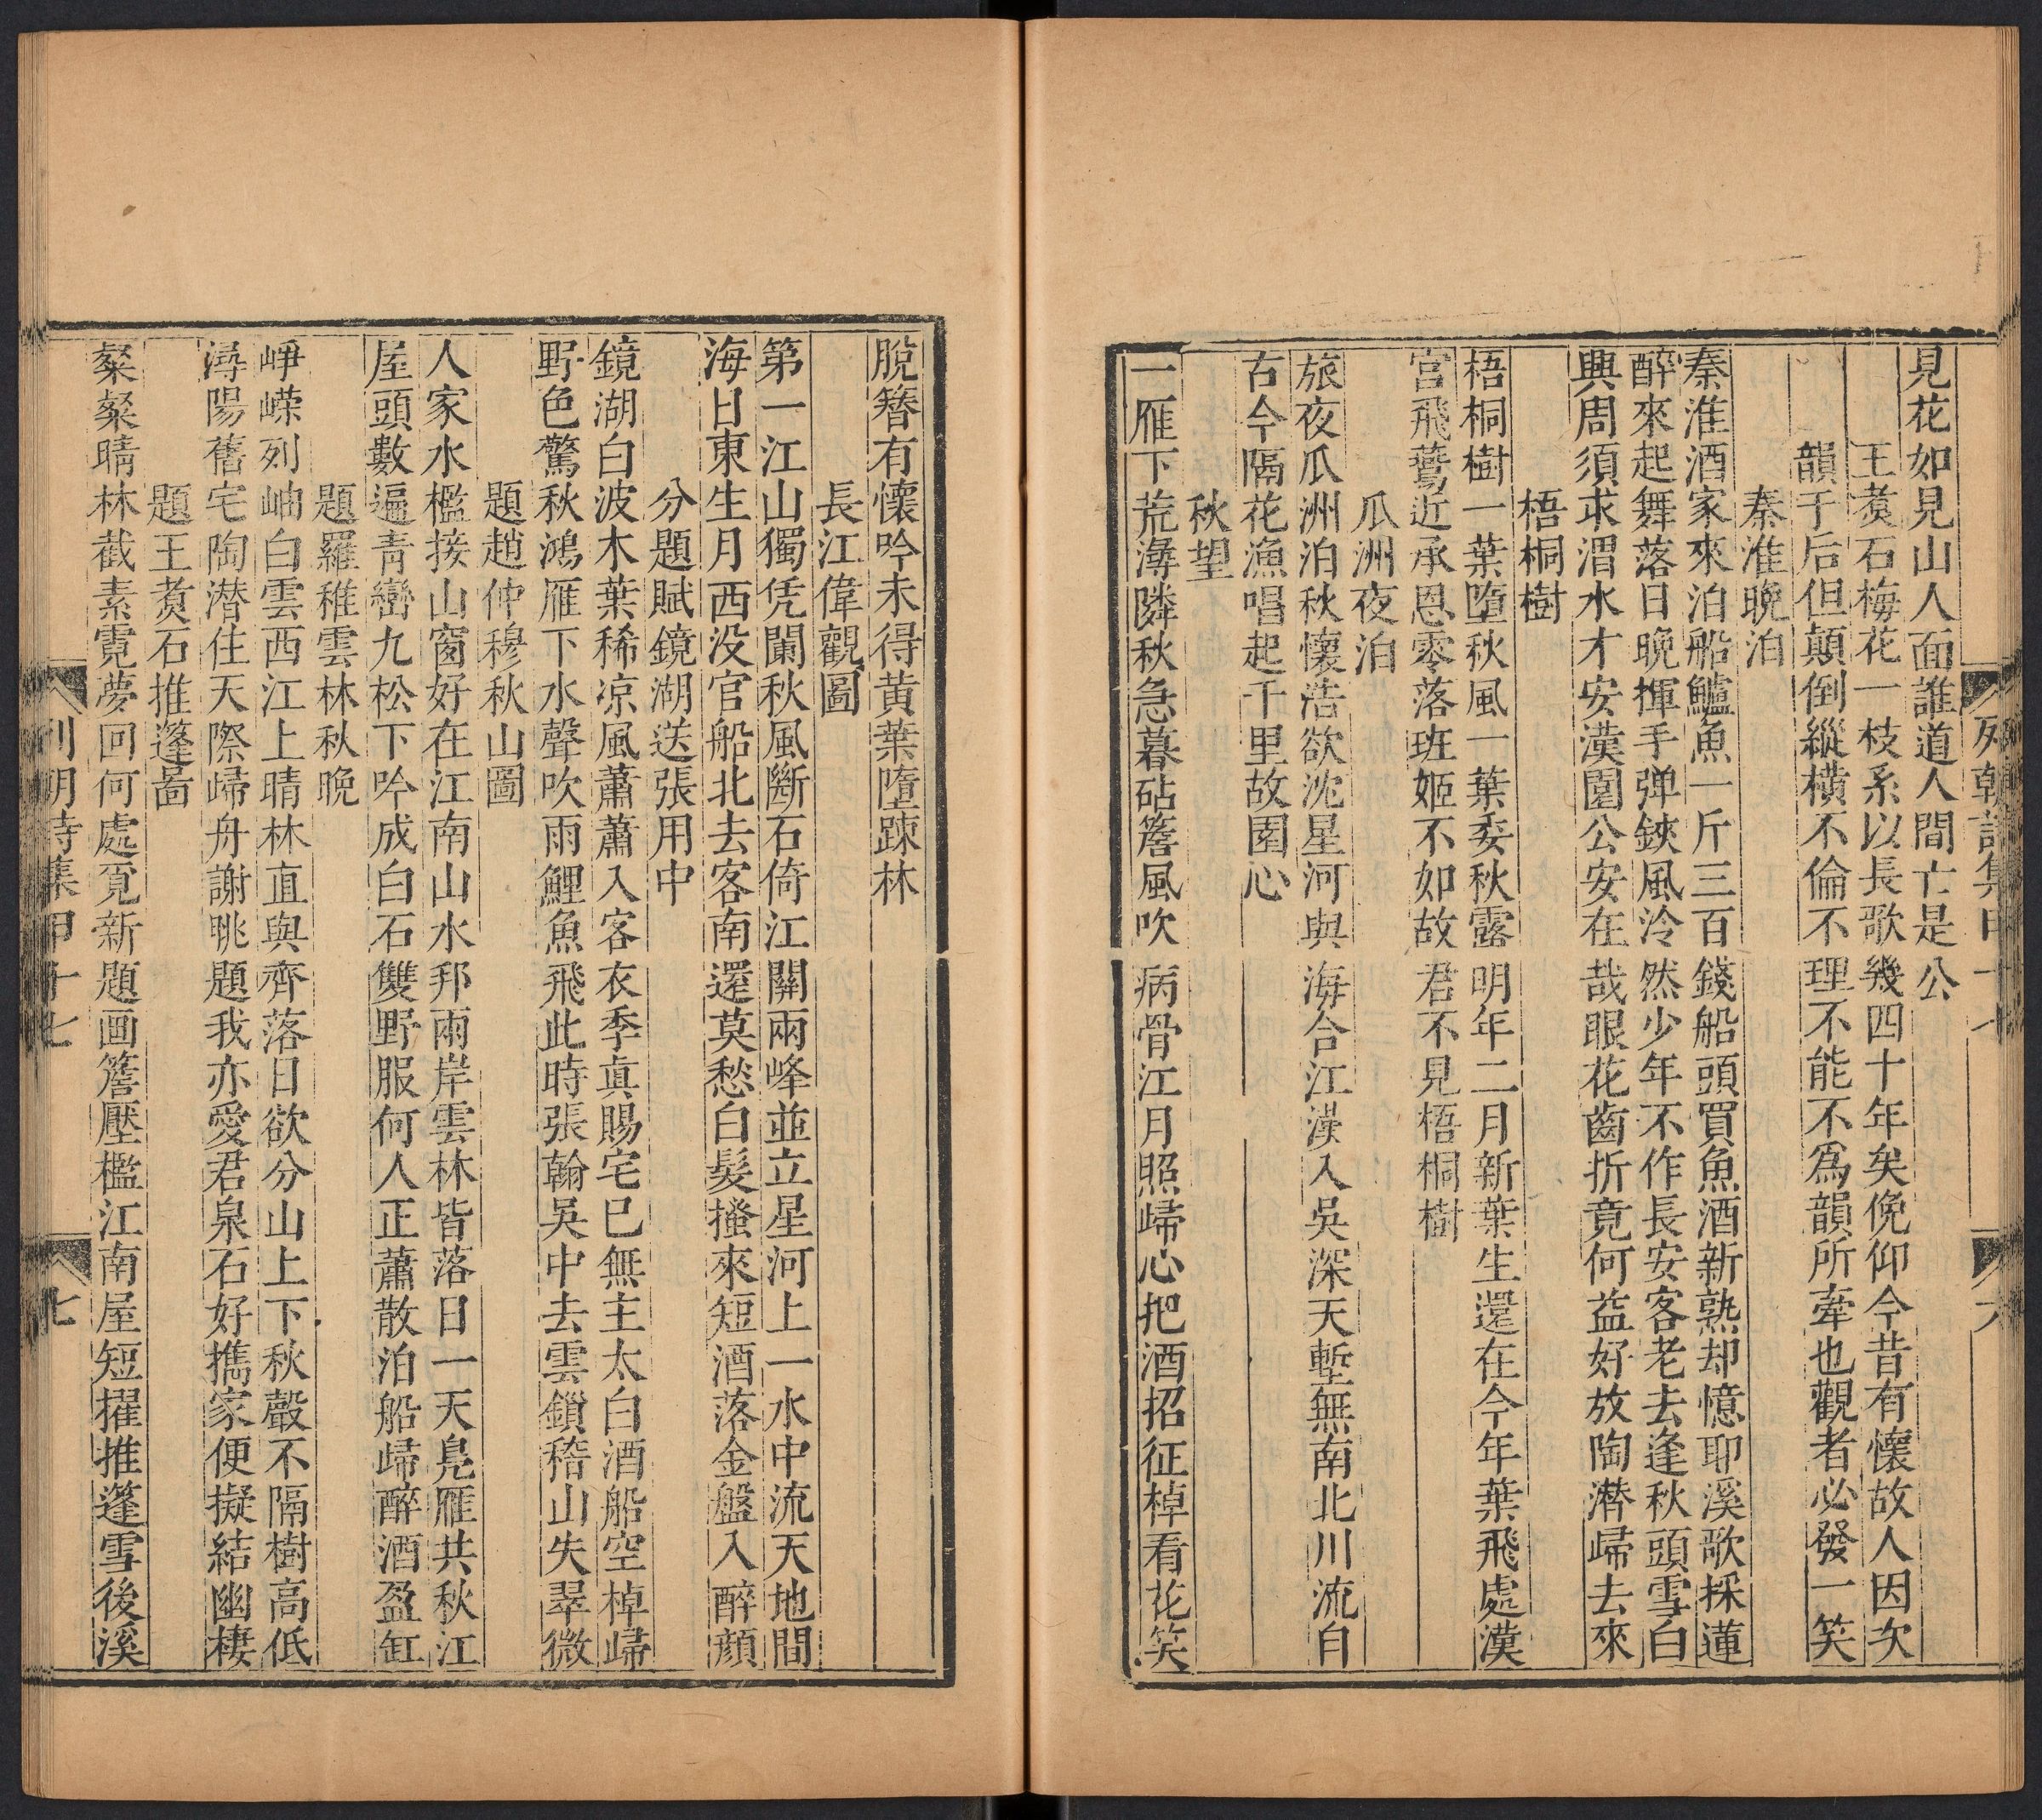 列朝詩集甲十七
六
見花如見山人面誰道人間亡是公
王煑石梅花一枝系以長歌幾四十年矣俛仰今昔有懷故人因次
韻于后但顛倒縱橫不倫不理不能不爲韻所牽也觀者必發一笑
秦淮晩泊
秦淮酒家來泊船鱸魚一斤三百錢船頭買魚酒新熟却憶耶溪歌採蓮
醉來起舞落日晚揮手弹鋏風泠然少年不作長安客老去逢秋頭雪白
興周須求渭水才安漢園公安在哉眼花齒折竟何益好放陶潜歸去來
梧桐樹
梧桐樹一葉墮秋風一葉委秋露明年二月新葉生還在今年葉飛處漢
宮飛鷰近承恩零落班姬不如故君不見梧桐樹
瓜洲夜泊
旅夜瓜洲泊秋懷浩欲沈星河與海合江漢入吳深天塹無南北川流自
古今隔花漁唱起千里故園心
秋望
一雁下荒潯隣秋急暮砧簷風吹病骨江月照歸心把酒招征棹看花笑
脫簪有懷吟未得黄葉墮踈林
長江偉觀圖
第一江山獨凭闌秋風斷石倚江關兩峰並立星河上一水中流天地間
海日東生月西没官船北去客南還莫愁白髮搔來短酒落金盤入醉顔
分題賦鏡湖送張用中
鏡湖白波木葉稀凉風蕭蕭入客衣季真賜宅已無主太白酒船空棹歸
野色驚秋鴻雁下水聲吹雨鯉魚飛此時張翰吳中去雲鎖稽山失翠微
題趙仲穆秋山圖
人家水檻接山窗好在江南山水邦兩岸雲林皆落日一天鳬雁共秋江
屋頭數遍靑巒九松下吟成白石雙野服何人正蕭散泊船歸醉酒盈缸
題羅稚雲林秋晚
崢嶸列岫白雲西江上晴林直與齊落日欲分山上下秋聲不隔樹高低
潯陽舊宅陶潜住天際歸舟謝眺題我亦愛君泉石好擕家便擬結幽棲
題王煑石推篷啚
粲粲晴林截素霓夢回何處覓新題画簷壓檻江南屋短擢推篷雪後溪
列朝詩集甲十七
七